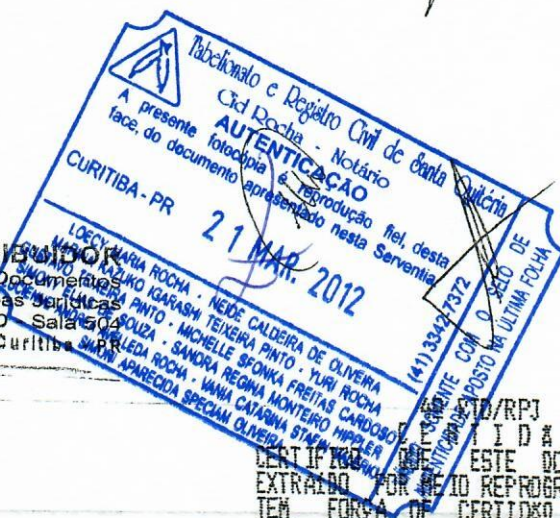 Tabelionato e Registro Civil de Santa Quitéria
Cid Rocha - Notário
AUTENTICAÇÃO
A presente fotocópia é reprodução fiel, desta
face, do documento apresentado nesta Serventia
CURITIBA - PR
21 MAR. 2012
(41) 3342-7372
LOECY MARIA ROCHA - NEIDE CALDEIRA DE OLIVEIRA
KAZUKO IGARASHI TEIXEIRA PINTO - YURI ROCHA
PINTO - MICHELLE SFONKA FREITAS CARDOSO
SOUZA - SANDRA REGINA MONTEIRO HIPPLER
ROCHA - VANIA CATARINA
APARECIDA SPECIAN OLIVEIRA
SOMENTE COM O SELO DE
APOSTO NA ÚLTIMA FOLHA
Documentos
Jurídicas
Sala 504
Curitiba - PR
/RPJ
ESTE
EXTRAIDO REPROGR
TEM FORÇA DE CERTIDÃO